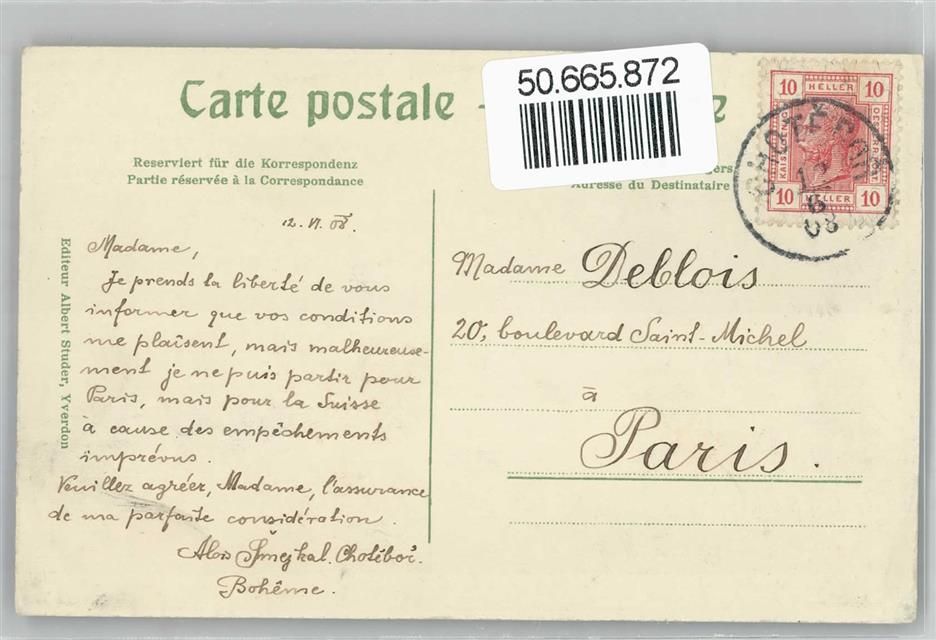 Carte postale -
50.665.872
e
Reserviert für die Korrespondenz
Partie réservée à la Correspondance
Adresse du Destinataire
10 HELLER 10
10 HELLER 10
CHOTĚBOŘ
12
6
08
Editeur Albert Studer, Yverdon
12. VI. 08.
Madame,
Je prends la liberté de vous
informer que vos conditions
me plaîsent, mais malheureuse-
ment je ne puis partir pour
Paris, mais pour la Suisse
à cause des empêchements
imprévus.
Veuillez agréer, Madame, l'assurance
de ma parfaite considération.
Alois Šmejkal. Chotěboř.
Bohême.
Madame Deblois
20, boulevard Saint-Michel
à
Paris.